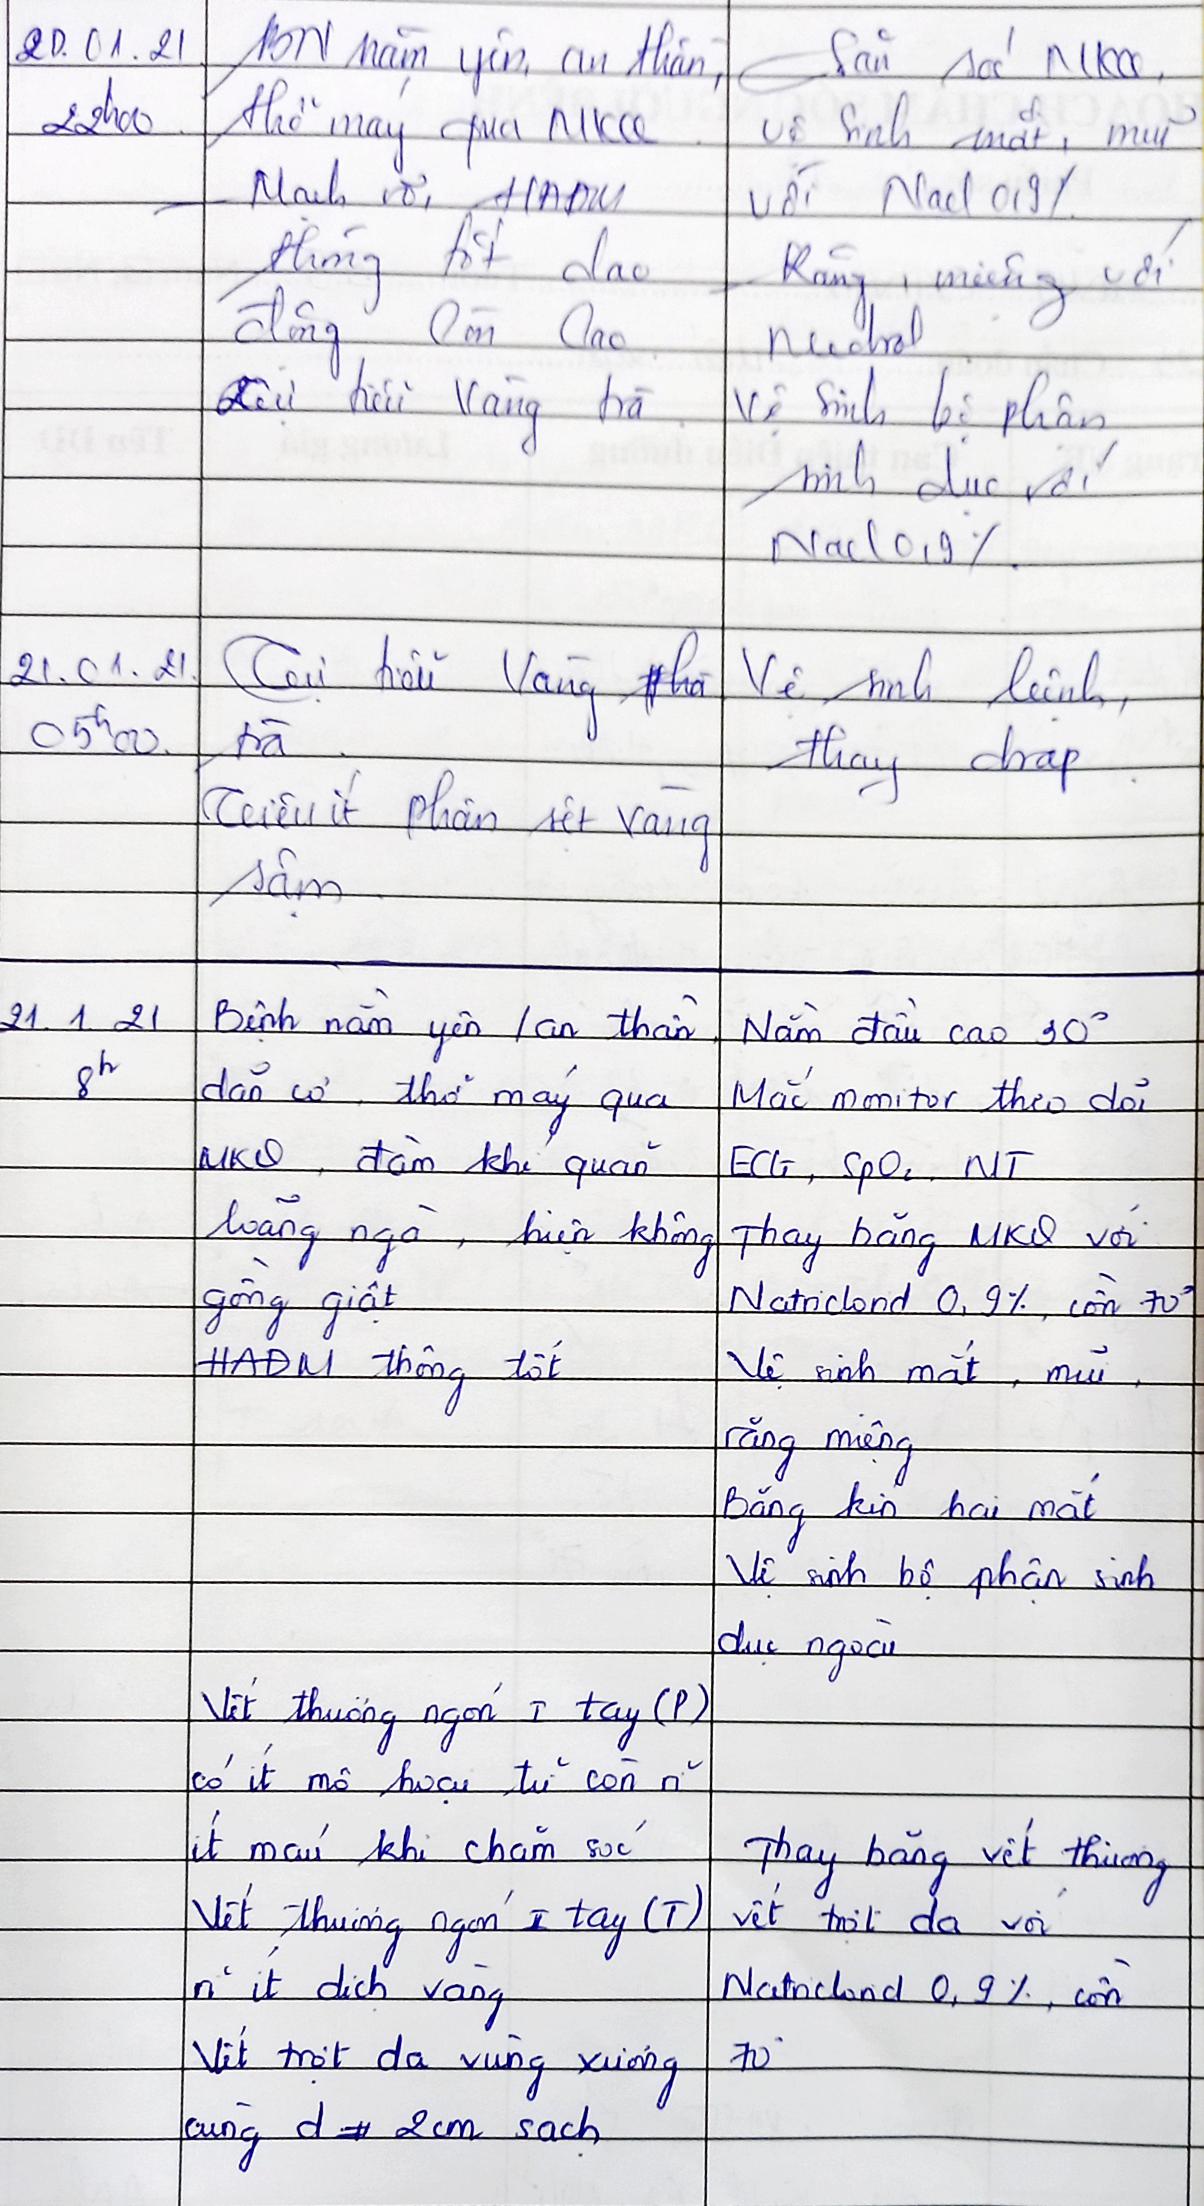 20.01.21
22h00
BN nằm yên, an thần,
thở máy qua MKQ
Mạch rõ, HAĐM
thông tốt dao
động còn cao
Tiểu vàng trà
Săn sóc MKQ,
vệ sinh mắt, mũi
với Nacl 0,9%
Răng, miệng với
Vệ sinh bộ phận
sinh dục với
Nacl 0,9%.
21.01.21.
05h00.
vàng
trà
Tiêu ít phân sệt vàng
sậm
Vệ sinh lưng,
thay drap.
21.1.21
8h
Bệnh nằm yên / an thần,
dãn cơ, thở máy qua
MKQ, đàm khí quản
loãng ngà, hiện không
gồng giật
HAĐM thông tốt
Nằm đầu cao 30°
Mắc monitor theo dỏi
ECG, SpO2, NT
Thay băng MKQ với
Natriclorid 0,9%, cồn 70°
Vệ sinh mắt, mũi,
răng miệng
Băng kín hai mắt
Vệ sinh bộ phận sinh
dục ngoài
Vết thương ngón I tay (P)
có ít mô hoại tử còn rỉ
ít máu khi chăm sóc
Vết thương ngón I tay (T)
rỉ ít dịch vàng
Vết trợt da vùng xương
cùng d # 2cm sạch
Thay băng vết thương
vết trợt da với
Natriclorid 0,9%, cồn
70°